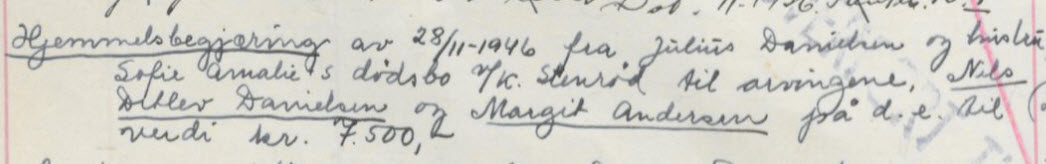 Hjemmelsbegjæring av 28/11-1946 fra Julius Danielsen og hustru
Sofie Amalie's dødsbo v/K. Stenrød til arvingene, Nils
Ditlev Danielsen og Margit Andersen på d.e. til
verdi kr. 7.500,-